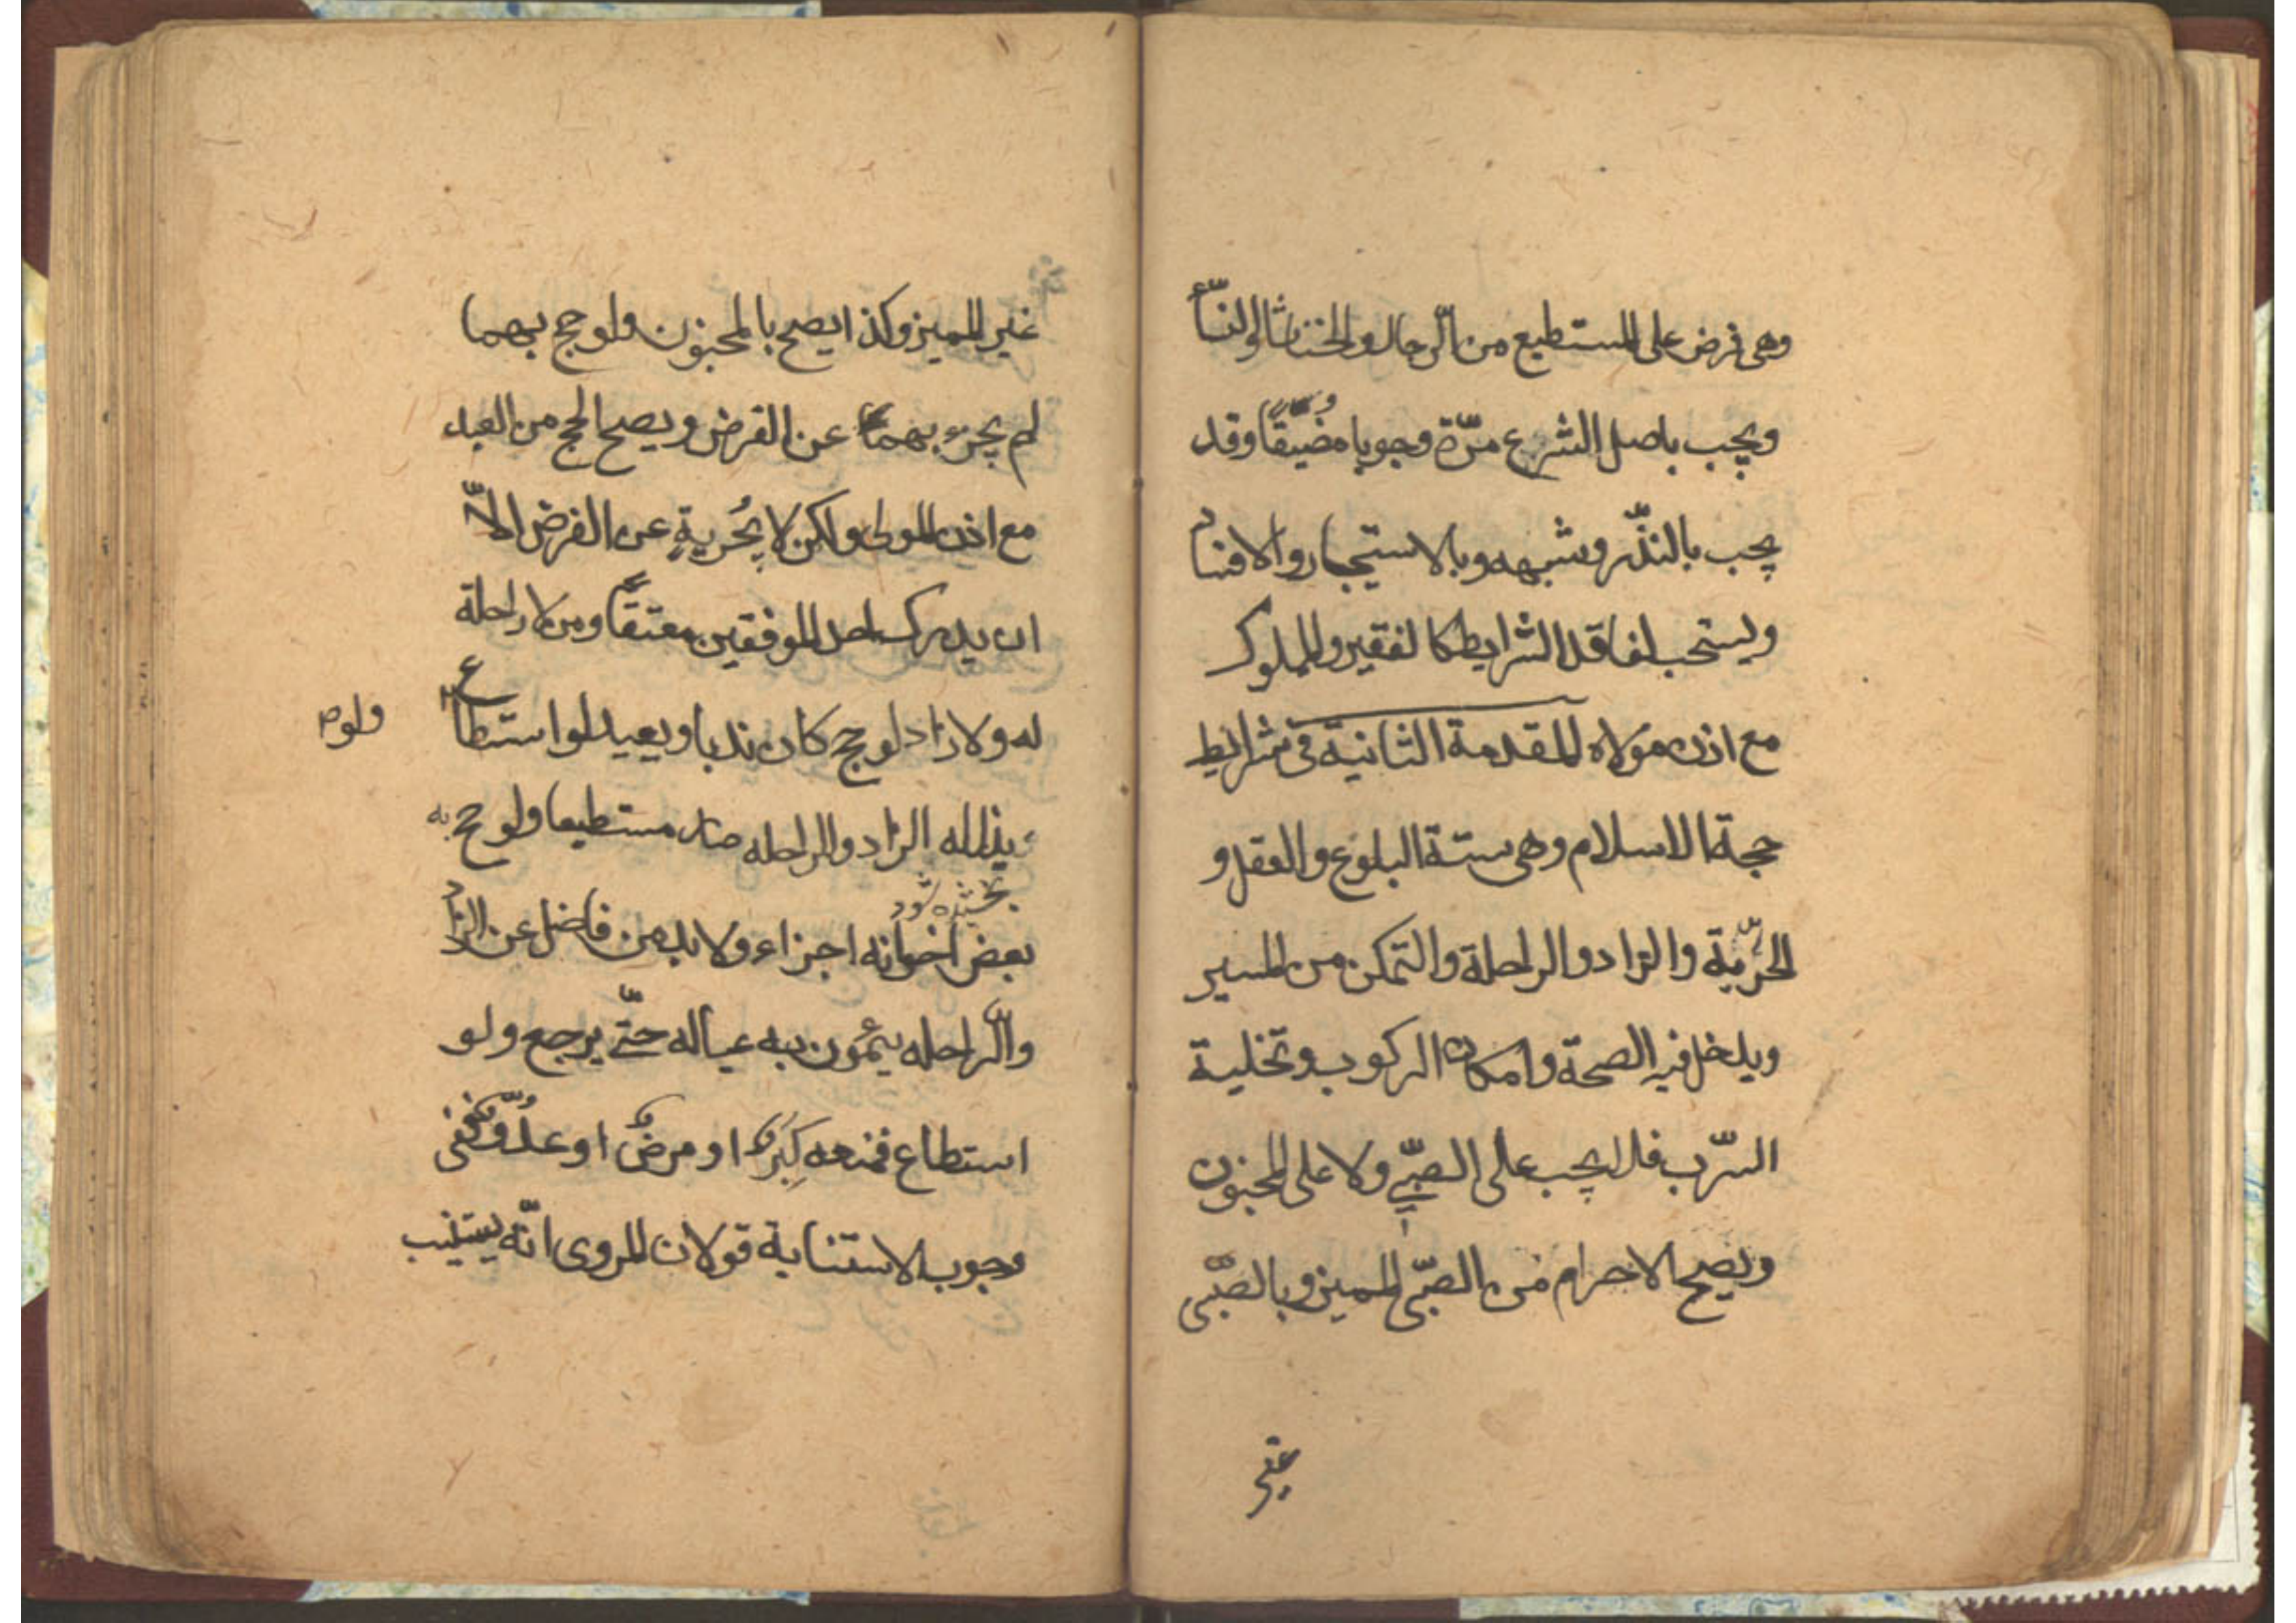 وهى فرض على المستطيع من الرّجال والخناثا والنسّاء
ويجب باصل الشرع مرّة وجوبا مُضيّقًا وقد
يجب بالنذّر وشبهه وبالاستيجار والافساد
ويستحب لفاقد الشرايط كالفقير والمملوك
مع اذن مولاه المقدمة الثانية فى شرايط
حجة الاسلام وهى ستة البلوغ والعقل و
الحرّية والزاد والراحلة والتمكن من المسير
ويدخل فيه الصحة وامكان الركوب وتخلية
السّرب فلا يجب على الصبّي ولا على المجنون
ويصح الاحرام من الصبّى المميز وبالصبّى
غير
غير المميز وكذا يصح بالمجنون ولو حج بهما
لم يجزء بهما عن الفرض ويصح الحج من العبد
مع اذن المولى ولكن لا يُجزيةِ عن الفرض الاّ
ان يدرك احد الموفقين معتقًا ومن لا راحلة
له ولا زاد لو حج كان ندبا ويعيد لو استطاع
ولو
بذل له الزاد والراحله صار مستطيعا ولو حج به
بخشيده شود
بعض اخوانه اجزاء ولا بد من فاضل عن الزاد
والرّاحله يمون به عياله حتّى يرجع ولو
استطاع فمنعه كِبَرٌ او مرضٌ او عدُوّ ففى
وجوب الاستنابة قولان المروى انّه يستنيب